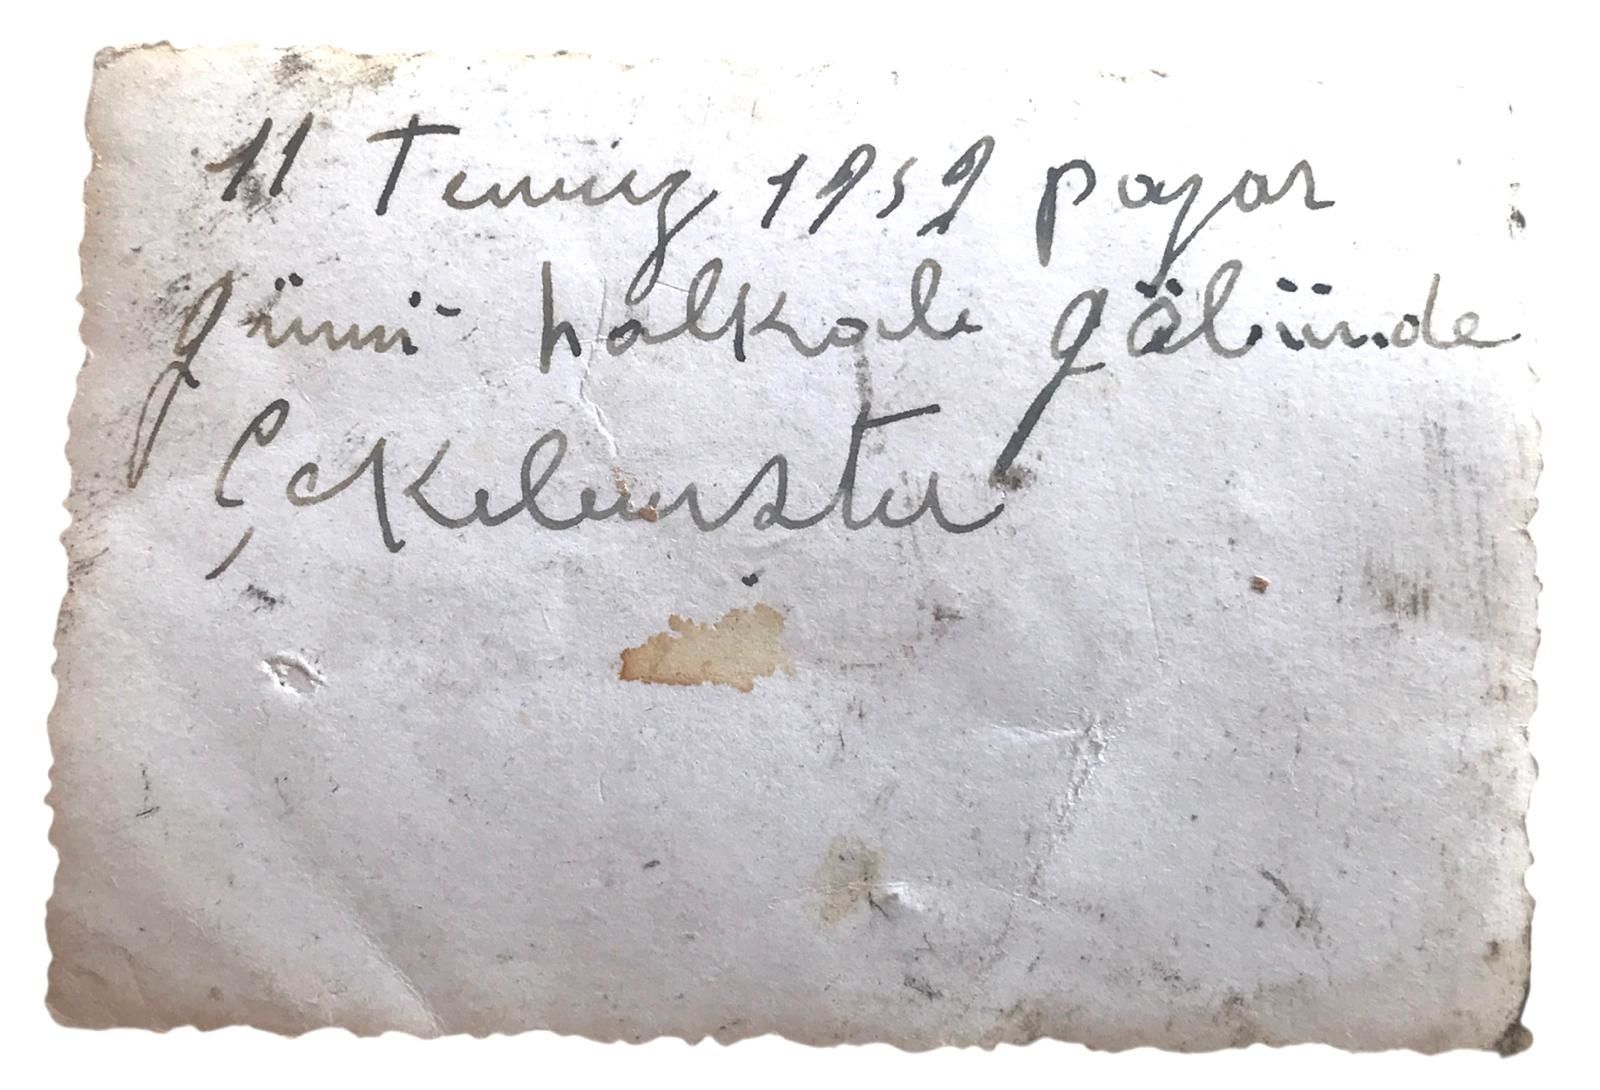 11 Temuz 1959 pazar
günü halkalı gölünde
Çekilmiştir